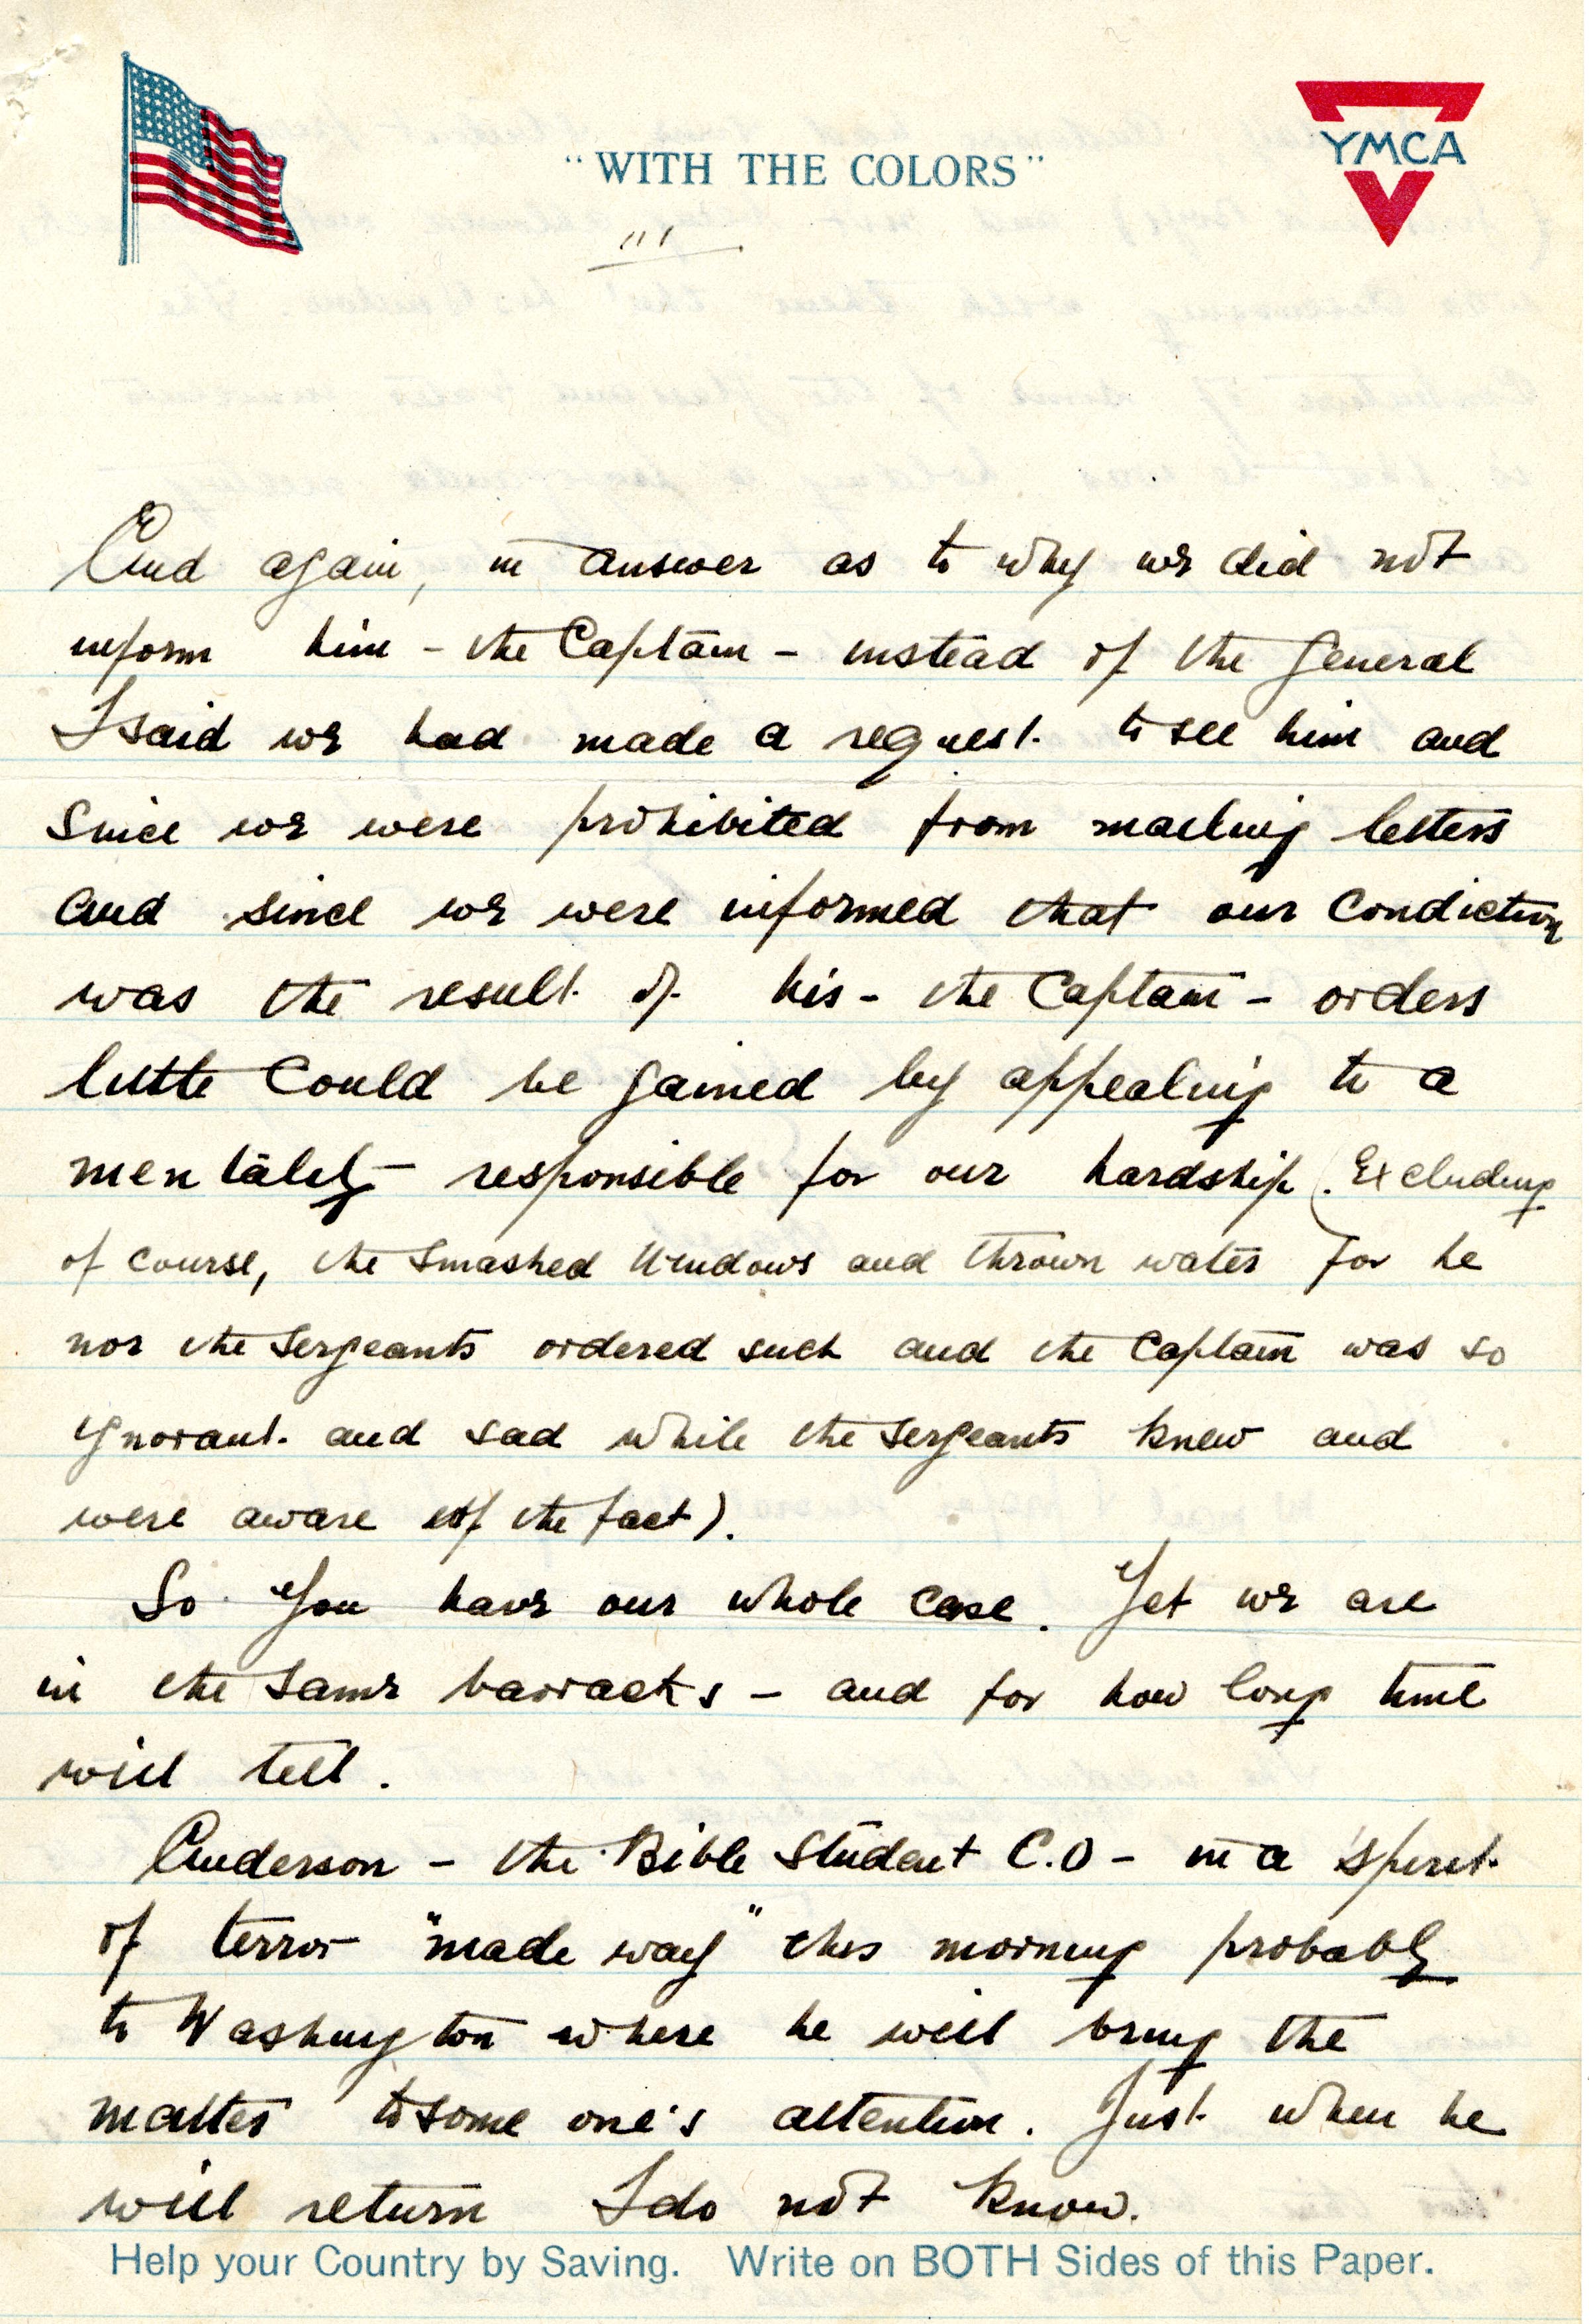 "WITH THE COLORS"
YMCA
III
And again, in answer as to why we did not
inform him - the Captain - instead of the General
I said we had made a request to see him and
since we were prohibited from mailing letters
and since we were informed that our condiction
was the result of his - the Captain - orders
little could be gained by appealing to a
mentality responsible for our hardship. (Excluding
of course, the smashed windows and thrown water for he
nor the sergeants ordered such and the Captain was so
ygnorant and sad while the sergeants knew and
were aware of the fact).
So you have our whole case. Yet we are
in the same barracks - and for how long time
will tell.
Anderson - the Bible Student C.O - in a spirit
of terror "made way" this morning probably
to Washington where he will bring the
matter to some one's attention. Just when he
will return I do not know.
Help your Country by Saving. Write on BOTH Sides of this Paper.